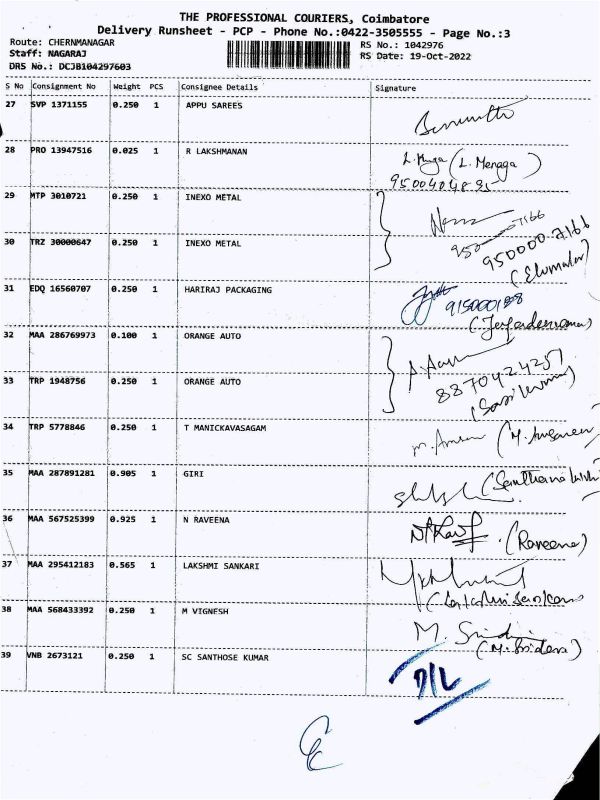 THE PROFESSIONAL COURIERS, Coimbatore
Delivery Runsheet - PCP - Phone No.:0422-3505555 - Page No.:3
Route: CHERNMANAGAR
RS No.: 1042976
Staff: NAGARAJ
RS Date: 19-Oct-2022
DRS No.: DCJB104297603
S No Consignment No Weight PCS Consignee Details Signature
27 SVP 1371155 0.250 1 APPU SAREES
28 PRO 13947516 0.025 1 R LAKSHMANAN
(L. Menaga)
29 MTP 3010721 0.250 1 INEXO METAL
30 TRZ 30000647 0.250 1 INEXO METAL
9500007166
(Elumalai)
31 EDQ 16560707 0.250 1 HARIRAJ PACKAGING
32 MAA 286769973 0.100 1 ORANGE AUTO
33 TRP 1948756 0.250 1 ORANGE AUTO
8870424257
34 TRP 5778846 0.250 1 T MANICKAVASAGAM
35 MAA 287891281 0.905 1 GIRI
36 MAA 567525399 0.925 1 N RAVEENA
(Raveena)
37 MAA 295412183 0.565 1 LAKSHMI SANKARI
38 MAA 568433392 0.250 1 M VIGNESH
39 VNB 2673121 0.250 1 SC SANTHOSE KUMAR
D/L